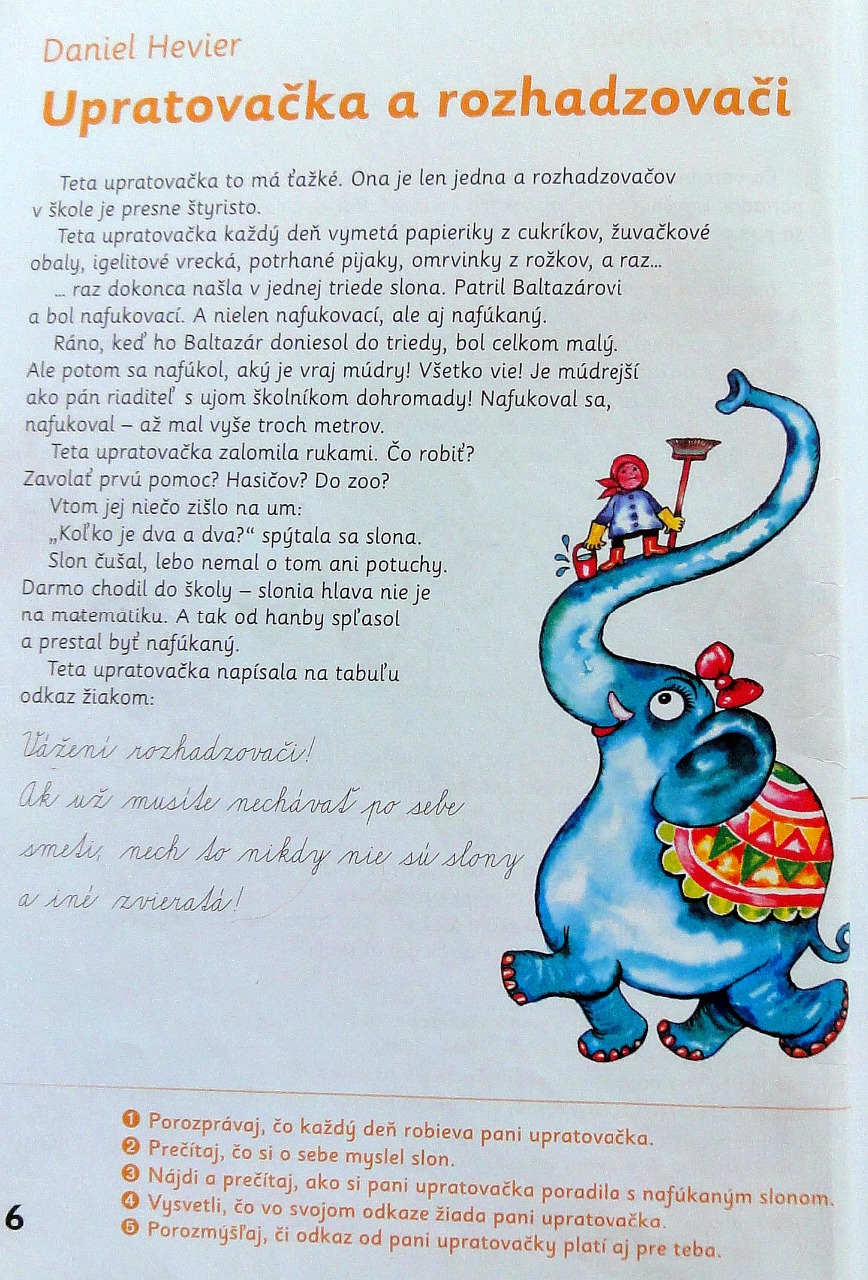 Daniel Hevier
Upratovačka a rozhadzovači
Teta upratovačka to má ťažké. Ona je len jedna a rozhadzovačov
v škole je presne štyristo.
Teta upratovačka každý deň vymetá papieriky z cukríkov, žuvačkové
obaly, igelitové vrecká, potrhané pijaky, omrvinky z rožkov, a raz...
... raz dokonca našla v jednej triede slona. Patril Baltazárovi
a bol nafukovací. A nielen nafukovací, ale aj nafúkaný.
Ráno, keď ho Baltazár doniesol do triedy, bol celkom malý.
Ale potom sa nafúkol, aký je vraj múdry! Všetko vie! Je múdrejší
ako pán riaditeľ s ujom školníkom dohromady! Nafukoval sa,
nafukoval – až mal vyše troch metrov.
Teta upratovačka zalomila rukami. Čo robiť?
Zavolať prvú pomoc? Hasičov? Do zoo?
Vtom jej niečo zišlo na um:
„Koľko je dva a dva?“ spýtala sa slona.
Slon čušal, lebo nemal o tom ani potuchy.
Darmo chodil do školy – slonia hlava nie je
na matematiku. A tak od hanby spľasol
a prestal byť nafúkaný.
Teta upratovačka napísala na tabuľu
odkaz žiakom:
Vážení rozhadzovači!
Ak už musíte nechávať po sebe
smeti, nech to nikdy nie sú slony
a iné zvieratá!
1 Porozprávaj, čo každý deň robieva pani upratovačka.
2 Prečítaj, čo si o sebe myslel slon.
3 Nájdi a prečítaj, ako si pani upratovačka poradila s nafúkaným slonom.
4 Vysvetli, čo vo svojom odkaze žiada pani upratovačka.
5 Porozmýšľaj, či odkaz od pani upratovačky platí aj pre teba.
6